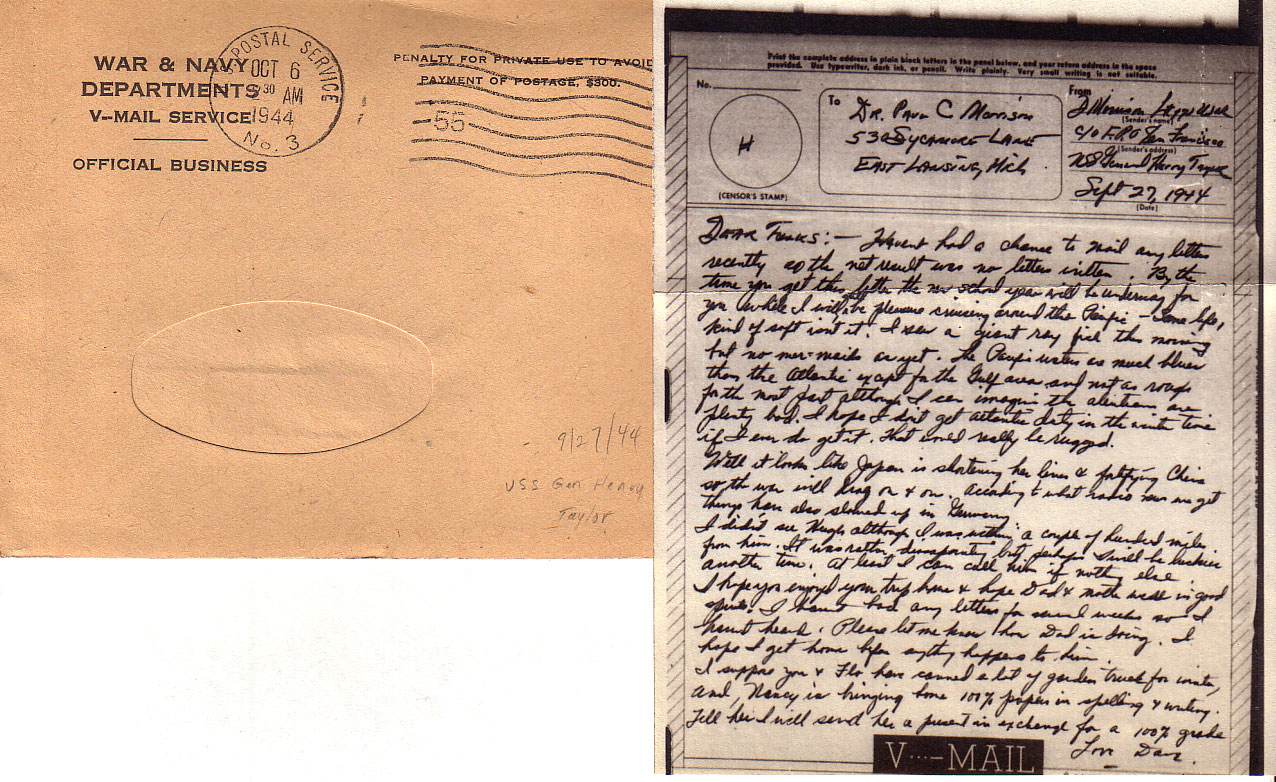 WAR & NAVY
DEPARTMENTS
V--MAIL SERVICE
OFFICIAL BUSINESS
POSTAL SERVICE
OCT 6
30 AM
1944
No. 3
PENALTY FOR PRIVATE USE TO AVOID
PAYMENT OF POSTAGE, $300.
55
9/27/44
USS Gen Henry
Taylor
Print the complete address in plain block letters in the panel below, and your return address in the space
provided. Use typewriter, dark ink, or pencil. Write plainly. Very small writing is not suitable.
No.
H
(CENSOR'S STAMP)
To
DR. PAUL C MORRISON
530 SYCAMORE LANE
EAST LANSING, MICH
From
D Morrison
(Sender's name)
c/o F.P.O San Francisco
(Sender's address)
USS General Harry Taylor
Sept 27, 1944
(Date)
DEAR FOLKS:— Havent had a chance to mail any letters
recently so the net result was no letters written. By the
time you get this letter the new school year will be underway for
you while I will be pleasure cruising around the Pacific — some life,
kind of soft isnt it. I saw a giant ray fish this morning
but no mer-maids as yet. The Pacific waters are much bluer
than the Atlantic except for the Gulf area and not as rough
for the most part although I can imagine the aleutians are
plenty bad. I hope I dont get atlantic duty in the winter time
if I ever do get it. That would really be rugged.
Well it looks like Japan is shortening her lines & fortifying China
so the war will drag on & on. According to what radio news we get
things have also slowed up in Germany.
I didn't see Hugh although I was within a couple of hundred miles
from him. It was rather but perhaps I will be luckier
another time. At least I can call him if nothing else
I hope you enjoyed your trip home & hope Dad & mother were in good
spirits. I havent had any letters for several weeks so I
havent heard. Please let me know how Dad is doing. I
hope I get home before anything happens to him.
I suppose you & Flo have canned a lot of garden truck for winter,
and, Nancy is bringing home 100% papers in spelling & writing.
Tell her I will send her a present in exchange for a 100% grade
Love Dave.
V···—MAIL